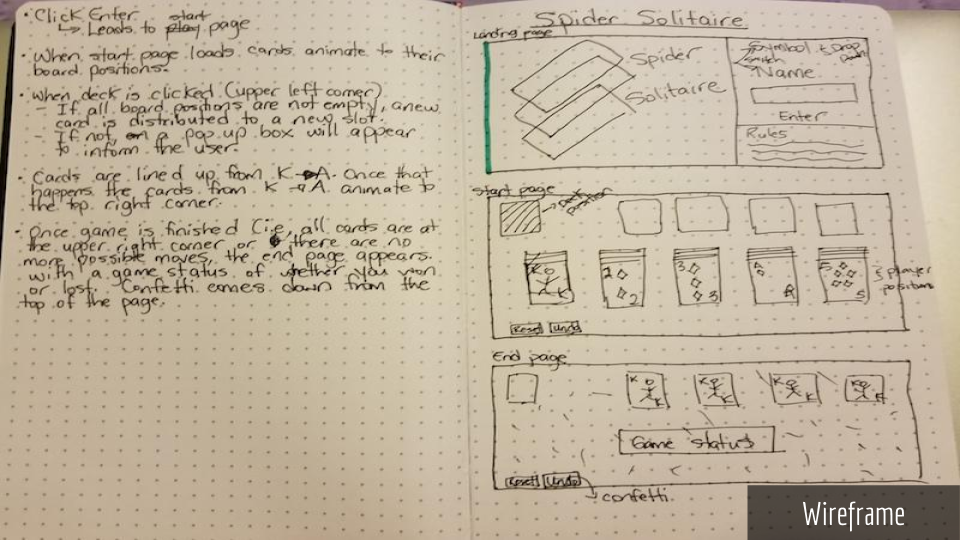 · Click Enter
↳ Leads to start page
· When start page loads cards animate to their
board positions.
· When deck is clicked (upper left corner)
- If all board positions are not empty, a new
card is distributed to a new slot.
- If not, a pop up box will appear
to inform the user
· Cards are lined up from K → A. Once that
happens the cards from K → A animate to
the top right corner.
· Once game is finished (i.e, all cards are at
the upper right corner or there are no
more possible moves, the end page appears.
with a game status of whether you won
or lost. Confetti comes down from the
top of the page.
Spider Solitaire
Landing page
Spider
Solitaire
Symbol
Name
Enter
Rules
Start page
K
K
2
2
3
3
A
A
5
5
5 player
positions
Reset Undo
End page
K K
K K
K K
K
Game status
Reset Undo
→ confetti.
Wireframe